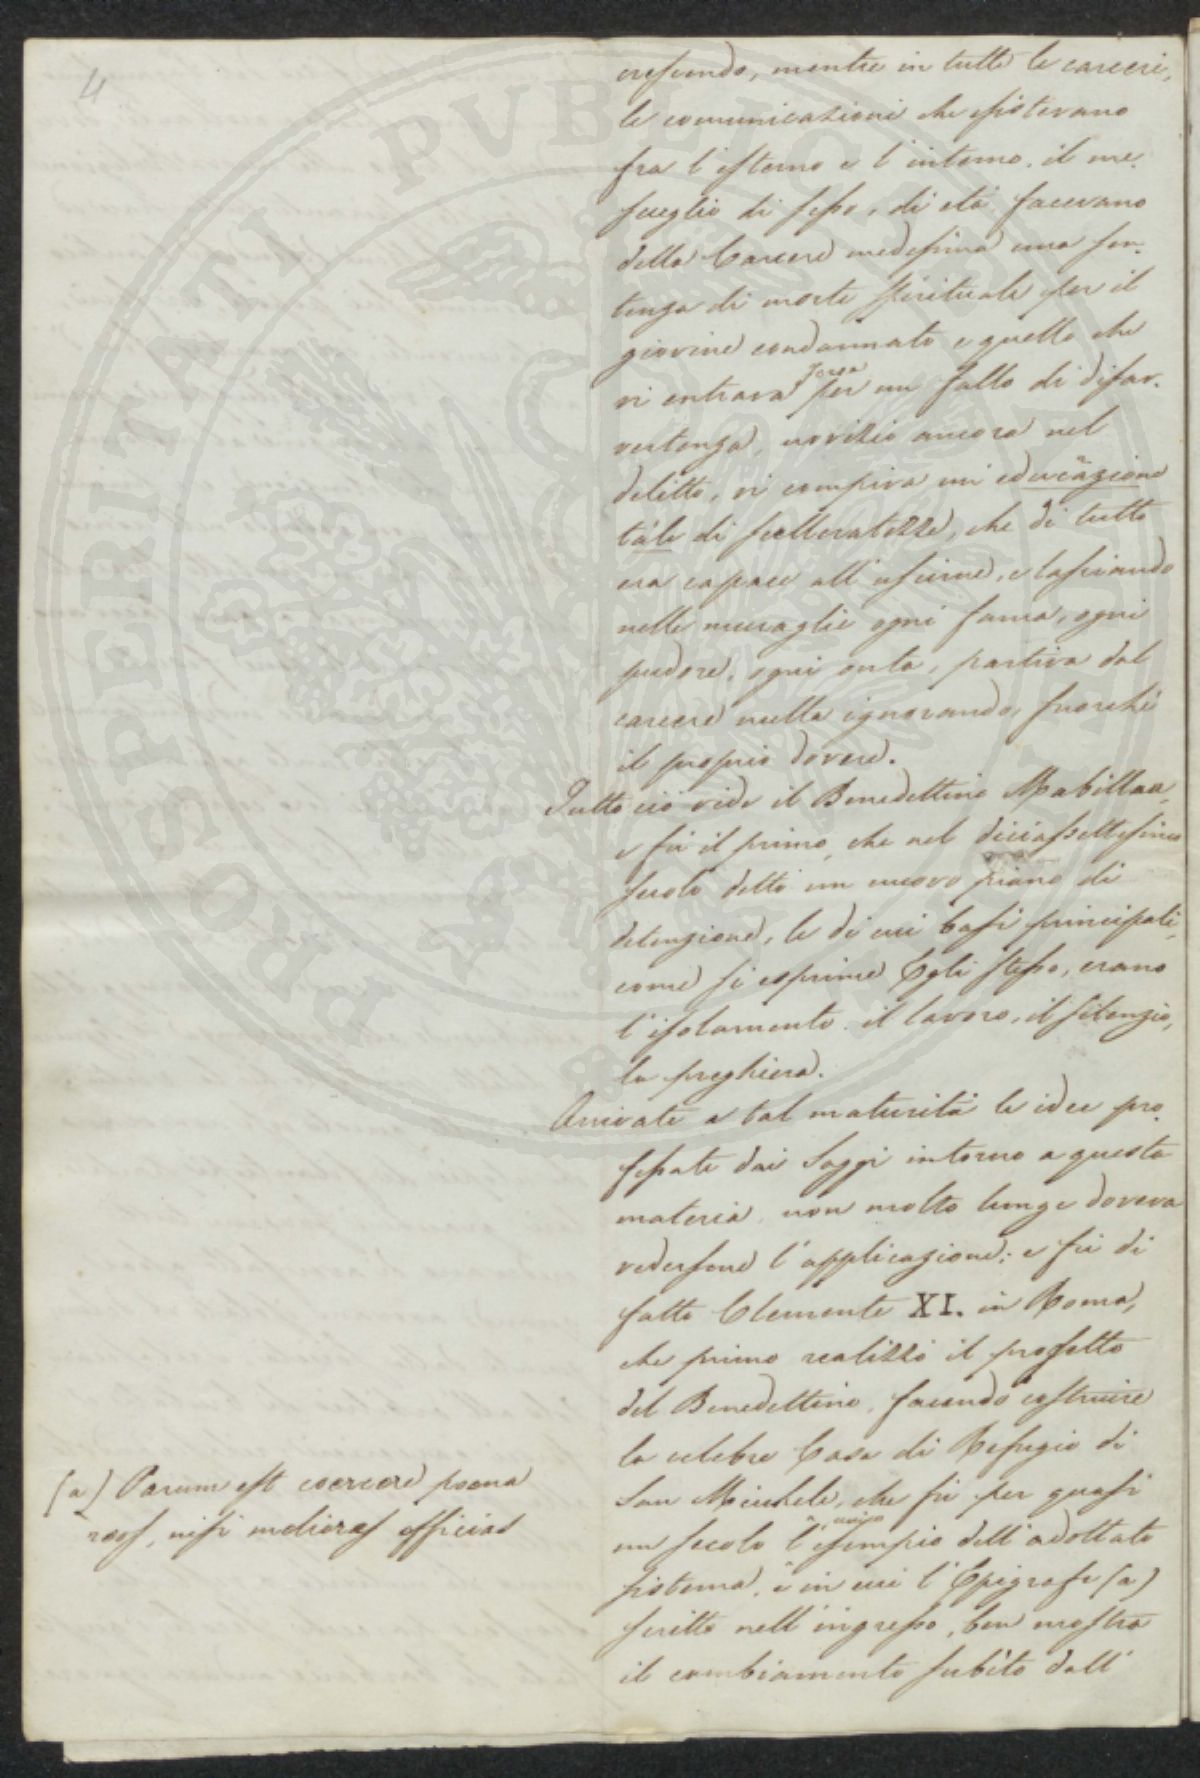 4
crescendo, mentre in tutte le carceri,
le comunicazioni che esistevano
fra l'esterno e l'interno, il me-
scuglio di sesso, di età facevano
della Carcere medesima una sen-
tenza di morte spirituale per il
giovine condannato e quello che
vi entrava forse per un fallo di disav-
vertenza, novizio ancora nel
delitto, vi compiva un'educazione
tale di scelleratezze, che di tutto
era capace all'uscirne, e lasciando
nelle muraglie ogni fama, ogni
pudore, ogni onta, partiva dal
carcere nulla ignorando, fuorchè
il proprio dovere.
Tutto ciò vide il Benedettino Mabillon,
e fù il primo, che nel diciassettesimo
secolo dettò un nuovo piano di
detenzione, le di cui basi principali,
come si esprime Egli stesso, erano
l'isolamento, il lavoro, il silenzio,
la preghiera.
Arrivate a tal maturità le idee pro-
fessate dai Saggi intorno a questa
materia, non molto lunge doveva
vedersene l'applicazione: e fù di
fatto Clemente XI. in Roma,
che primo realizzò il progetto
del Benedettino, facendo costruire
la celebre Casa di Refugio di
San Michele, che fù per quasi
un secolo l'unico esempio dell'adottato
sistema, e in cui l'Epigrafe (a)
scritto nell'ingresso, ben mostra
il cambiamento subìto dall'
(a) Parum est coercere poena
reos, nisi meliores efficias
PROSPERITATI PVBLICAE